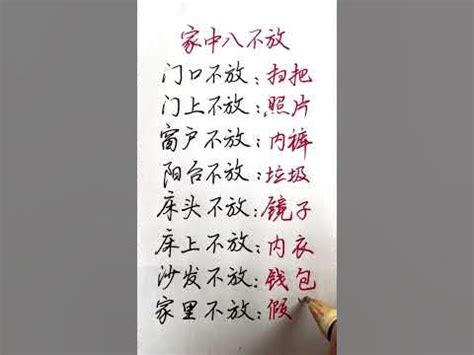 家中八不放
门口不放:扫把
门上不放:照片
窗户不放:内裤
阳台不放:垃圾
床头不放:镜子
床上不放:内衣
沙发不放:钱包
家里不放:假